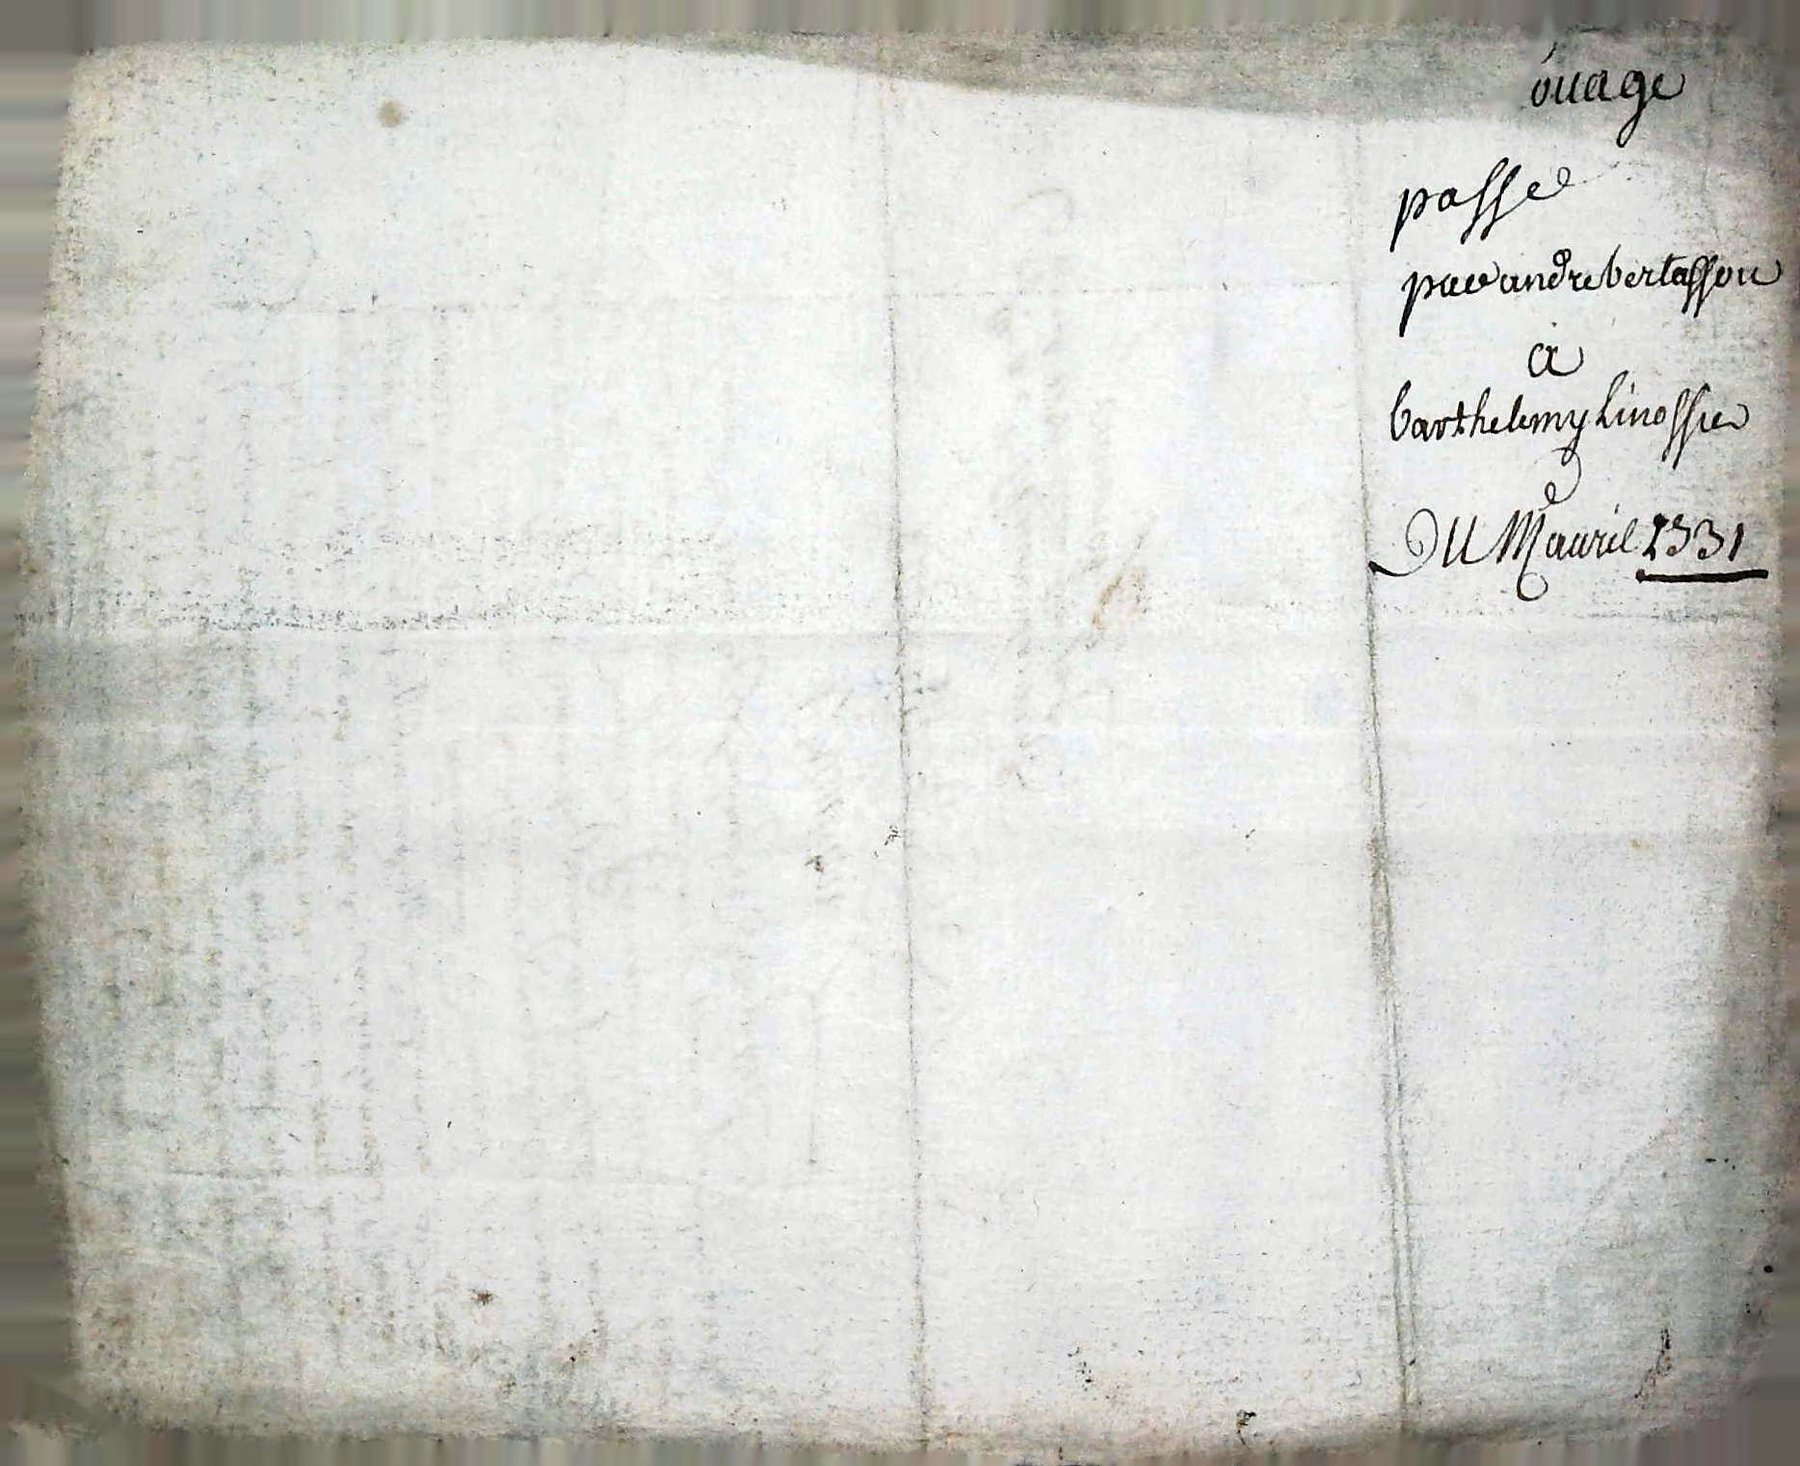 ouage
passe
par andre bertassou
a
barthelemy Linossier
Du Me auril 1331